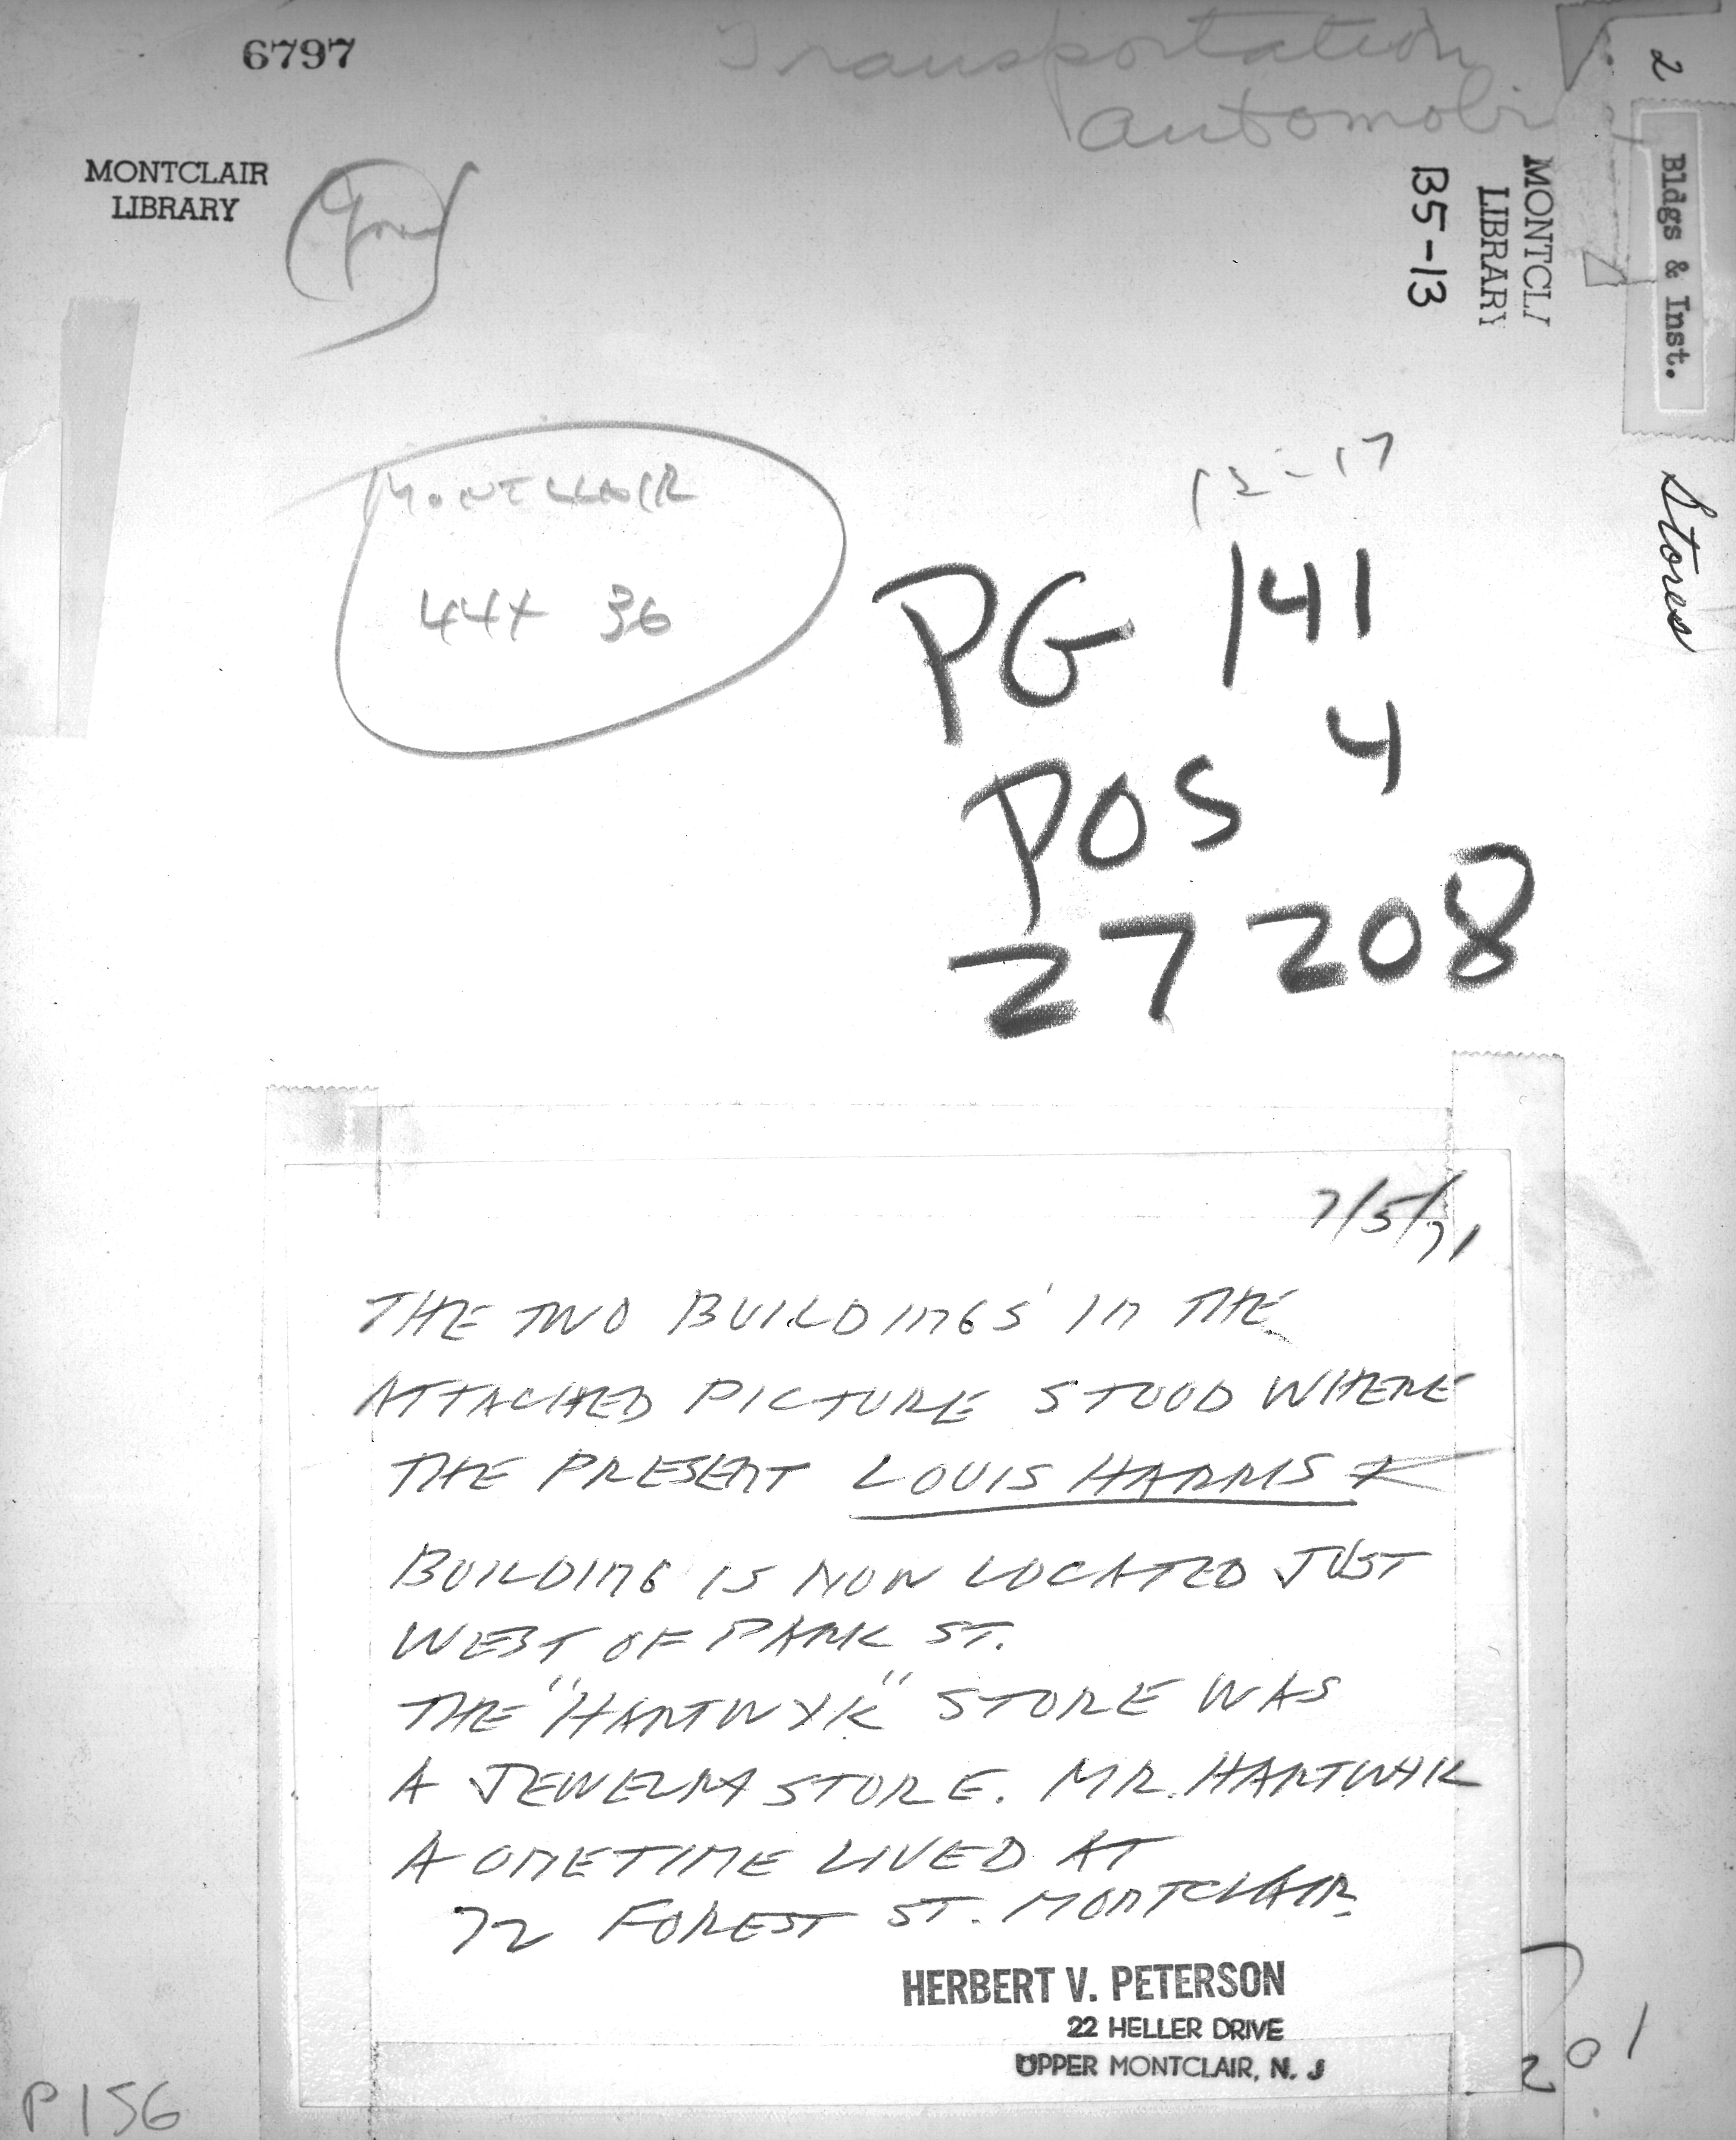 6797
Transportation
automobile
MONTCLAIR
LIBRARY
2
Bldgs & Inst.
Stores
MONTCLA
LIBRARY
B5-13
MONTCLAIR
44x 36
12-17
PG 141
POS 4
27208
7/5/71
THE TWO BUILDINGS IN THE
ATTACHED PICTURE STOOD WHERE
THE PRESENT LOUIS HARRIS
BUILDING IS NOW LOCATED JUST
WEST OF PARK ST.
THE "HARTWYK" STORE WAS
A JEWELRY STORE. MR. HARTWYK
A ONETIME LIVED AT
72 FOREST ST. MONTCLAIR.
HERBERT V. PETERSON
22 HELLER DRIVE
UPPER MONTCLAIR, N. J
P156
201